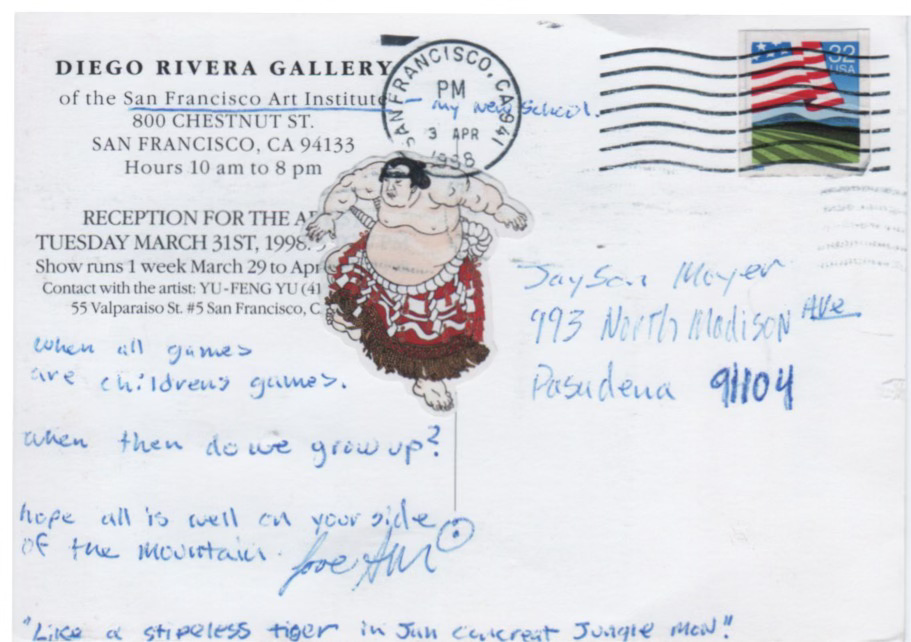 DIEGO RIVERA GALLERY
of the San Francisco Art Institute - my new school.
800 CHESTNUT ST.
SAN FRANCISCO, CA 94133
Hours 10 am to 8 pm
RECEPTION FOR THE
TUESDAY MARCH 31ST, 1998.
Show runs 1 week March 29 to
Contact with the artist: YU-FENG YU (41
55 Valparaiso St. #5 San Francisco, C
when all games
are childrens games.
when then do we grow up?
hope all is well on your side
of the mountain.
love
"Like a stipeless tiger in Jan concreat Jungle
SAN FRANCISCO, CA 941
PM
3 APR
1998
32
USA
Jayson Meyer
993 North Madison Ave
Pasadena 91104